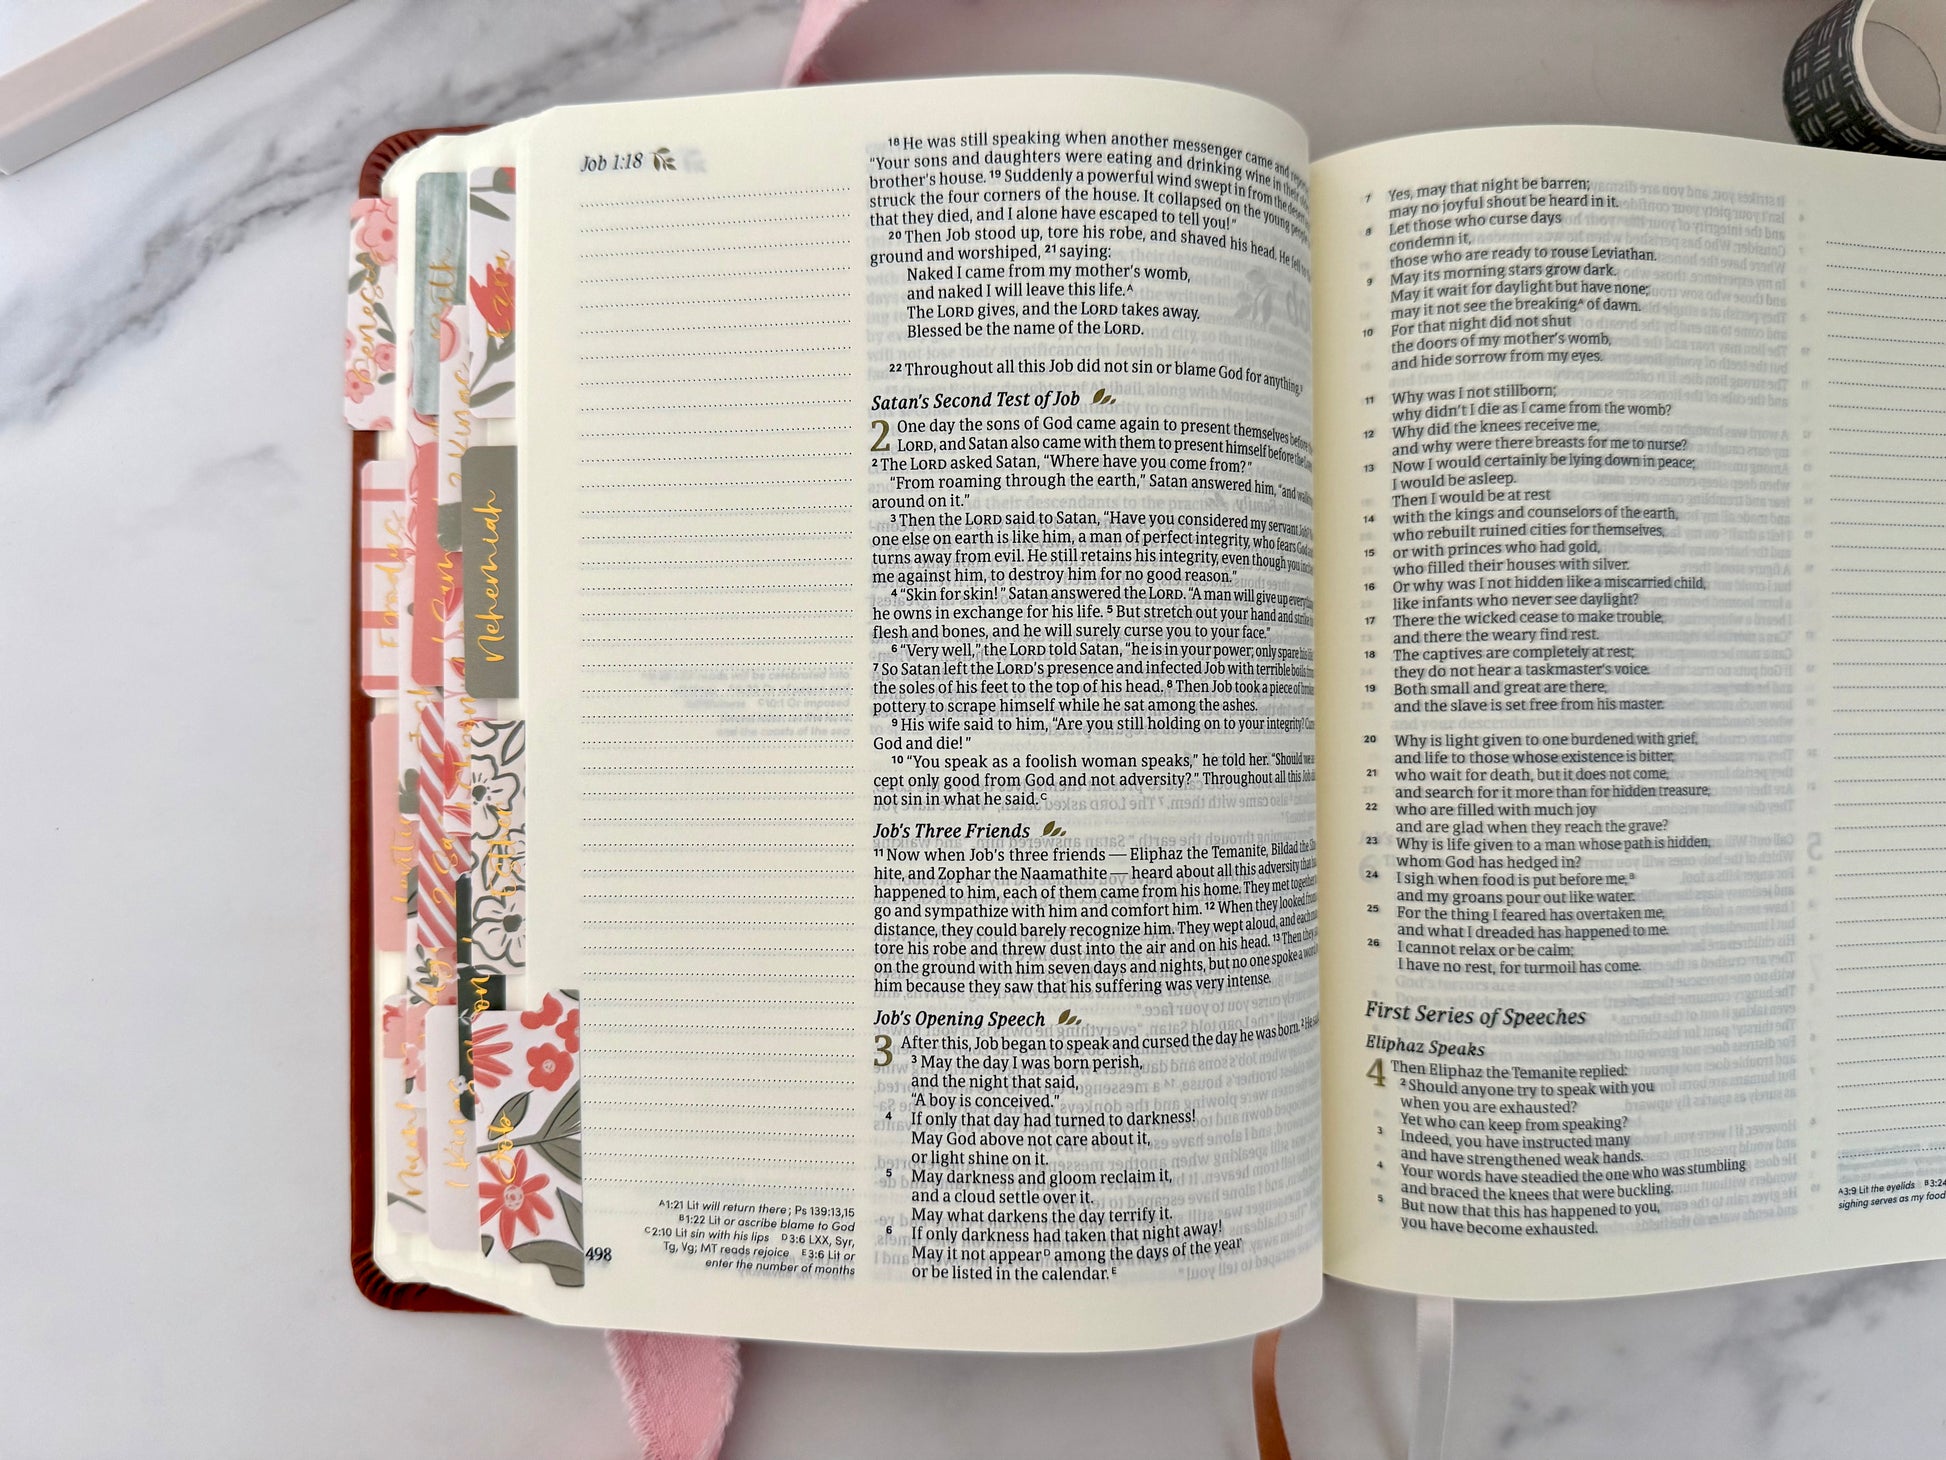 Job 1:18
18 He was still speaking when another messenger came and
"Your sons and daughters were eating and drinking wine in their
brother's house. 19 Suddenly a powerful wind swept in from the desert
struck the four corners of the house. It collapsed on the young people
that they died, and I alone have escaped to tell you!"
20 Then Job stood up, tore his robe, and shaved his head. He fell to
ground and worshiped, 21 saying:
Naked I came from my mother's womb,
and naked I will leave this life.A
The LORD gives, and the LORD takes away.
Blessed be the name of the LORD.
22 Throughout all this Job did not sin or blame God for anything.
Satan's Second Test of Job
2 One day the sons of God came again to present themselves before
LORD, and Satan also came with them to present himself before the
2 The LORD asked Satan, "Where have you come from?"
"From roaming through the earth," Satan answered him, "and
around on it."
3 Then the LORD said to Satan, "Have you considered my servant
one else on earth is like him, a man of perfect integrity, who fears God
turns away from evil. He still retains his integrity, even though you
me against him, to destroy him for no good reason."
4 "Skin for skin!" Satan answered the LORD. "A man will give up
he owns in exchange for his life. 5 But stretch out your hand and strike
flesh and bones, and he will surely curse you to your face."
6 "Very well," the LORD told Satan, "he is in your power; only spare
7 So Satan left the LORD's presence and infected Job with terrible boils
the soles of his feet to the top of his head. 8 Then Job took a piece of
pottery to scrape himself while he sat among the ashes.
9 His wife said to him, "Are you still holding on to your integrity?
God and die!"
10 "You speak as a foolish woman speaks," he told her. "Should we
cept only good from God and not adversity?" Throughout all this Job
not sin in what he said.C
Job's Three Friends
11 Now when Job's three friends — Eliphaz the Temanite, Bildad the
hite, and Zophar the Naamathite — heard about all this adversity that
happened to him, each of them came from his home. They met together
go and sympathize with him and comfort him. 12 When they looked
distance, they could barely recognize him. They wept aloud, and each
tore his robe and threw dust into the air and on his head. 13 Then they
on the ground with him seven days and nights, but no one spoke a
him because they saw that his suffering was very intense.
Job's Opening Speech
3 After this, Job began to speak and cursed the day he was born. 2 He
3 May the day I was born perish,
and the night that said,
"A boy is conceived."
4 If only that day had turned to darkness!
May God above not care about it,
or light shine on it.
5 May darkness and gloom reclaim it,
and a cloud settle over it.
May what darkens the day terrify it.
6 If only darkness had taken that night away!
May it not appearD among the days of the year
or be listed in the calendar.E
A1:21 Lit will return there; Ps 139:13,15
B1:22 Lit or ascribe blame to God
C2:10 Lit sin with his lips D3:6 LXX, Syr,
Tg, Vg; MT reads rejoice E3:6 Lit or
enter the number of months
498
Genesis
Exodus
Ruth
Ezra
2 Kings
1 Sam
Nehemiah
2 Sam
Esther
1 Kings
Job
7 Yes, may that night be barren;
may no joyful shout be heard in it.
8 Let those who curse days
condemn it,
those who are ready to rouse Leviathan.
9 May its morning stars grow dark.
May it wait for daylight but have none;
may it not see the breakingA of dawn.
10 For that night did not shut
the doors of my mother's womb,
and hide sorrow from my eyes.
11 Why was I not stillborn;
why didn't I die as I came from the womb?
12 Why did the knees receive me,
and why were there breasts for me to nurse?
13 Now I would certainly be lying down in peace;
I would be asleep.
Then I would be at rest
14 with the kings and counselors of the earth,
who rebuilt ruined cities for themselves,
15 or with princes who had gold,
who filled their houses with silver.
16 Or why was I not hidden like a miscarried child,
like infants who never see daylight?
17 There the wicked cease to make trouble,
and there the weary find rest.
18 The captives are completely at rest;
they do not hear a taskmaster's voice.
19 Both small and great are there,
and the slave is set free from his master.
20 Why is light given to one burdened with grief,
and life to those whose existence is bitter,
21 who wait for death, but it does not come,
and search for it more than for hidden treasure,
22 who are filled with much joy
and are glad when they reach the grave?
23 Why is life given to a man whose path is hidden,
whom God has hedged in?
24 I sigh when food is put before me,B
and my groans pour out like water.
25 For the thing I feared has overtaken me,
and what I dreaded has happened to me.
26 I cannot relax or be calm;
I have no rest, for turmoil has come.
First Series of Speeches
Eliphaz Speaks
4 Then Eliphaz the Temanite replied:
2 Should anyone try to speak with you
when you are exhausted?
Yet who can keep from speaking?
3 Indeed, you have instructed many
and have strengthened weak hands.
4 Your words have steadied the one who was stumbling
and braced the knees that were buckling.
5 But now that this has happened to you,
you have become exhausted.
A3:9 Lit the eyelids B3:24
sighing serves as my food